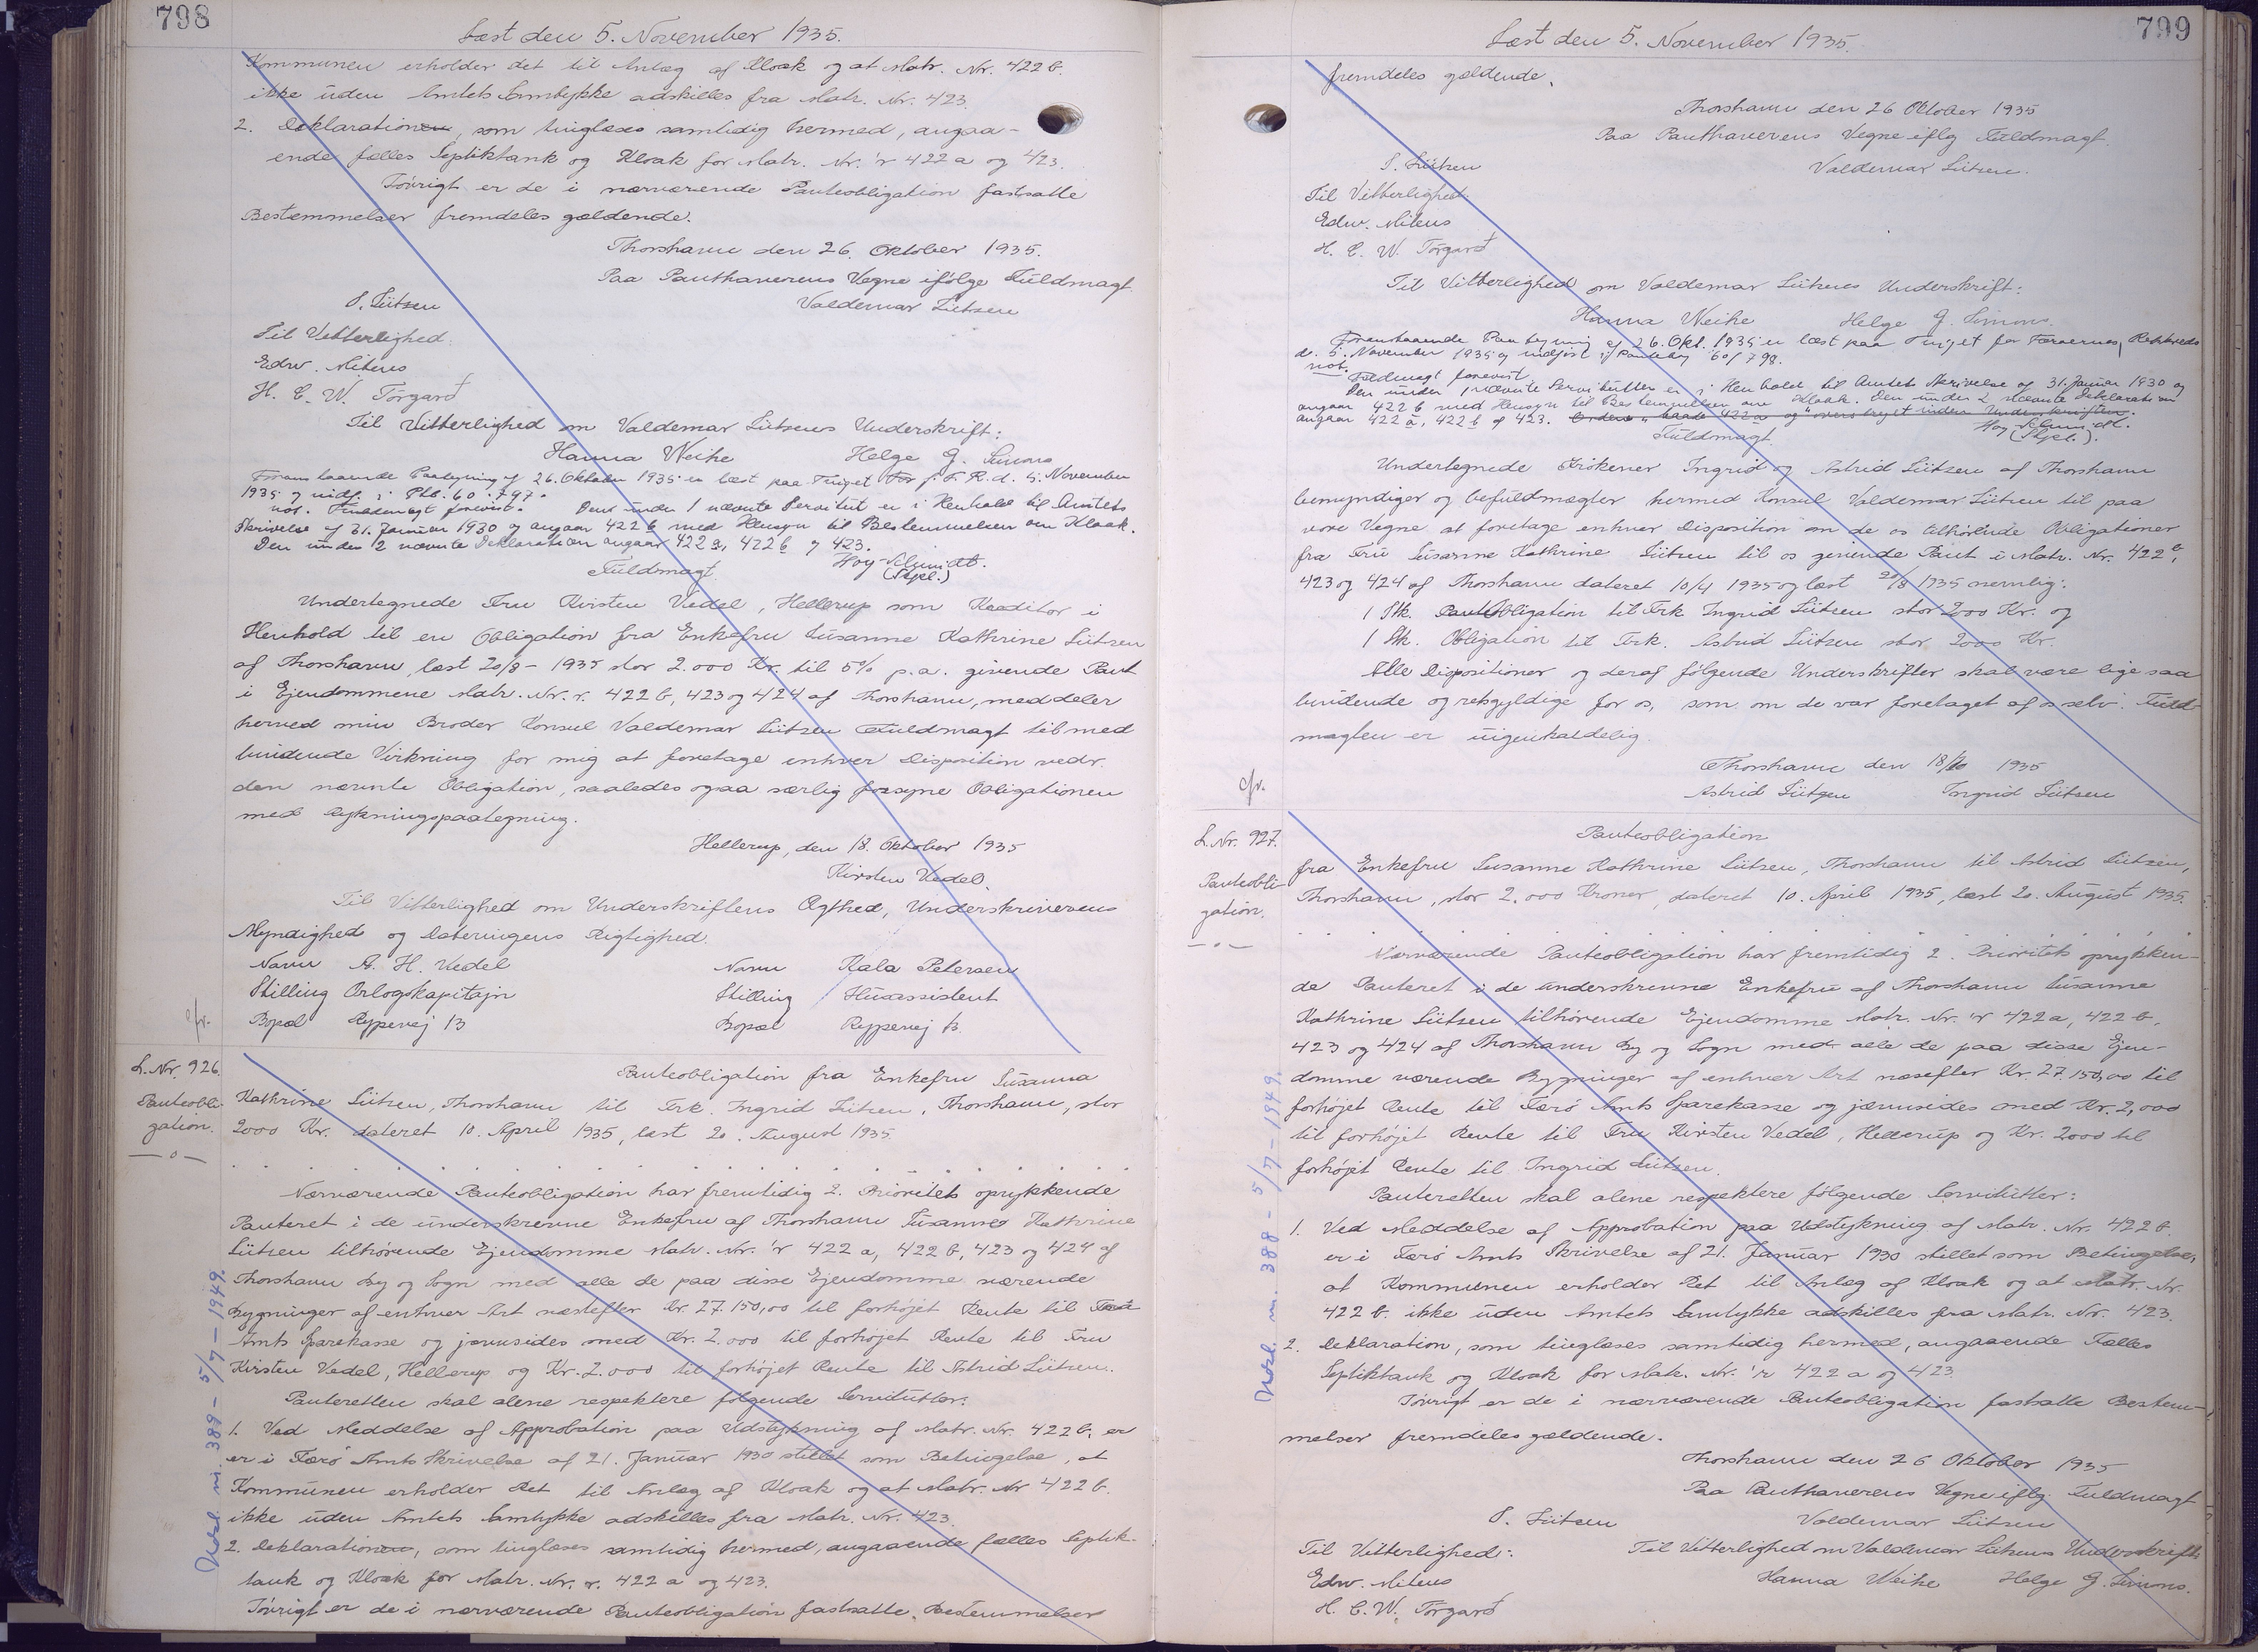 798
Læst den 5. November 1935.
Kommunen erholder det til Anlæg af Kloak og at Matr. Nr. 422 b.
ikke uden Amtets Samtykke adskilles fra Matr. Nr. 423.
2. Deklarationen, som tinglæses samtidig hermed, angaa-
ende fælles Septiktank og Kloak for Matr. Nr. 'r 422 a og 423.
Iövrigt er de i nærværende Panteobligation fastsatte
Bestemmelser fremdeles gældende.
Thorshavn den 26. Oktober 1935.
Paa Panthaverens Vegne ifölge Fuldmagt
S. Lützen Valdemar Lützen
Til Vitterlighed:
Edw. Mitens
H. C. W. Tórgarð
Til Vitterlighed om Valdemar Lützens Underskrift:
Hanna Weihe Helge G. Simons
Foranstaaende Paategning af 26. Oktober 1935 er læst paa Tinget for f. F. R. d. 5. November
1935 og indf. i Ptb. 60. 797.
not. Fuldmagt forevist. Den under 1 nævnte Servitut er i Henhold til Amtets
Skrivelse af 31. Januar 1930 og angaar 422 b med Hensyn til Bestemmelsen om Kloak.
Den under 2 nævnte Deklaration angaar 422 a, 422 b og 423.
Hoy-Schmidt.
(Stpl.)
Fuldmagt.
Undertegnede Fru Kirsten Vedel, Hellerup som Kreditor i
Henhold til en Obligation fra Enkefru Susanne Kathrine Lützen
af Thorshavn, læst 20/8 - 1935 stor 2.000 Kr. til 5% p.a. givende Pant
i Ejendommene Matr. Nr. r. 422 b, 423 og 424 af Thorshavn, meddeler
herved min Broder Konsul Valdemar Lützen Fuldmagt til med
bindende Virkning for mig at foretage enhver Disposition vedr.
den nævnte Obligation, saaledes ogsaa særlig forsyne Obligationen
med Rykningspaategning.
Hellerup, den 18. Oktober 1935
Kirsten Vedel.
Til Vitterlighed om Underskriftens Ægthed, Underskriverens
Myndighed og Dateringens Rigtighed.
Navn A. H. Vedel Navn Kala Petersen
Stilling Orlogskaptajn Stilling Husassistent
Bopæl Rypevej 13 Bopæl Rypevej 13.
cfr.
L. Nr. 926.
Panteobli-
gation.
—o—
Panteobligation fra Enkefru Susanna
Kathrine Lützen, Thorshavn til Frk. Ingrid Lützen, Thorshavn, stor
2000 Kr. dateret 10. April 1935, læst 20. August 1935.
Nærværende Panteobligation har fremtidig 2. Prioritets oprykkende
Panteret i de underskrevne Enkefru af Thorshavn Susanne Kathrine
Lützen tilhörende Ejendomme Matr. Nr. 'r 422 a, 422 b, 423 og 424 af
Thorshavn By og Sogn med alle de paa disse Ejendomme værende
Bygninger af enhver Art næstefter Kr. 27.150,00 til forhöjet Rente til Færö
Amts Sparekasse og jævnsides med Kr. 2.000 til forhöjet Rente til Fru
Kirsten Vedel, Hellerup og Kr. 2.000 til forhöjet Rente til Astrid Lützen.
Panteretten skal alene respektere fölgende Servitutter:
1. Ved Meddelse af Approbation paa Udstykning af Matr. Nr. 422 b, er
er i Færö Amts Skrivelse af 21. Januar 1930 stillet som Betingelse, at
Kommunen erholder Ret til Anlæg af Kloak og at Matr. Nr 422 b.
ikke uden Amtets Samtykke adskilles fra Matr. Nr. 423.
2. Deklarationen, som tinglæses samtidig hermed, angaaende fælles Septik-
tank og Kloak for Matr. Nr. r. 422 a og 423.
Iövrigt er de i nærværende Panteobligation fastsatte Bestemmelser
Udsl. nr. 389 - 5/7 - 1949.
799
Læst den 5. November 1935.
fremdeles gældende.
Thorshavn den 26 Oktober 1935
Paa Panthaverens Vegne iflg Fuldmagt.
S. Lützen Valdemar Lützen.
Til Vitterlighed:
Edw. Mitens
H. C. W. Tórgarð
Til Vitterlighed om Valdemar Lützens Underskrift:
Hanna Weihe Helge G. Simons.
Foranstaaende Paategning af 26. Okt. 1935 er læst paa Tinget for Færøernes Retskreds
d. 5. November 1935 og indført i Pantebog 60/798.
not. Fuldmagt forevist.
Den under 1 nævnte Servitutter er i Henhold til Amtets Skrivelse af 31. Januar 1930 og
angaar 422 b med Hensyn til Bestemmelsen om Kloak. Den under 2 nævnte Deklaration
angaar 422 a, 422 b og 423. Ordene "baade 422 a og" overstreget inden Underskriften.
Hoy-Schmidt.
(Stpl.).
Fuldmagt.
Undertegnede Frökener Ingrid og Astrid Lützen af Thorshavn
bemyndiger og befuldmægter hermed Konsul Valdemar Lützen til paa
vore Vegne at foretage enhver Disposition om de os tilhörende Obligationer
fra Fru Susanne Kathrine Lützen til os givende Pant i Matr. Nr. 422 b,
423 og 424 af Thorshavn dateret 10/4 1935 og læst 20/8 1935 nemlig:
1 Stk. Panteobligation til Frk Ingrid Lützen stor 2000 Kr. og
1 Stk. Obligation til Frk. Astrid Lützen stor 2000 Kr.
Alle Dispositioner og deraf fölgende Underskrifter skal være lige saa
bindende og retsgyldige for os, som om de var foretaget af os selv. Fuld-
magten er uigenkaldelig.
Thorshavn den 18/10 1935
Astrid Lützen Ingrid Lützen
cfr.
L. Nr. 927.
Panteobli-
gation.
—o—
Panteobligation
fra Enkefru Susanne Kathrine Lützen, Thorshavn til Astrid Lützen,
Thorshavn, stor 2.000 Kroner, dateret 10. April 1935, læst 20. August 1935.
Nærværende Panteobligation har fremtidig 2. Prioritets oprykken-
de Panteret i de underskrevne Enkefru af Thorshavn Susanne
Kathrine Lützen tilhörende Ejendomme Matr. Nr. 'r 422 a, 422 b,
423 og 424 af Thorshavn By og Sogn med alle de paa disse Ejen-
domme værende Bygninger af enhver Art næsefter Kr. 27.150,00 til
forhöjet Rente til Færö Amts Sparekasse og jævnsides med Kr. 2,000
til forhöjet Rente til Fru Kirsten Vedel, Hellerup og Kr. 2000 til
forhöjet Rente til Ingrid Lützen.
Panteretten skal alene respektere fölgende Servitutter:
1. Ved Meddelse af Approbation paa Udstykning af Matr. Nr. 422 b.
er i Færö Amts Skrivelse af 21. Januar 1930 stillet som Betingelse,
at Kommunen erholder Ret til Anlæg af Kloak og at Matr. Nr.
422 b. ikke uden Amtets Samtykke adskilles fra Matr. Nr. 423.
2. Deklaration, som tinglæses samtidig hermed, angaaende Fælles
Septiktank og Kloak for Matr. Nr. 'r 422 a og 423.
Iövrigt er de i nærværende Panteobligation fastsatte Bestem-
melser fremdeles gældende.
Thorshavn den 26 Oktober 1935
Paa Panthaverens Vegne iflg. Fuldmagt
S. Lützen Valdemar Lützen
Til Vitterlighed: Til Vitterlighed om Valdemar Lützens Underskrift:
Edw. Mitens Hanna Weihe Helge G. Simons.
H. C. W. Tórgarð
Udsl. nr. 388 - 5/7 - 1949.